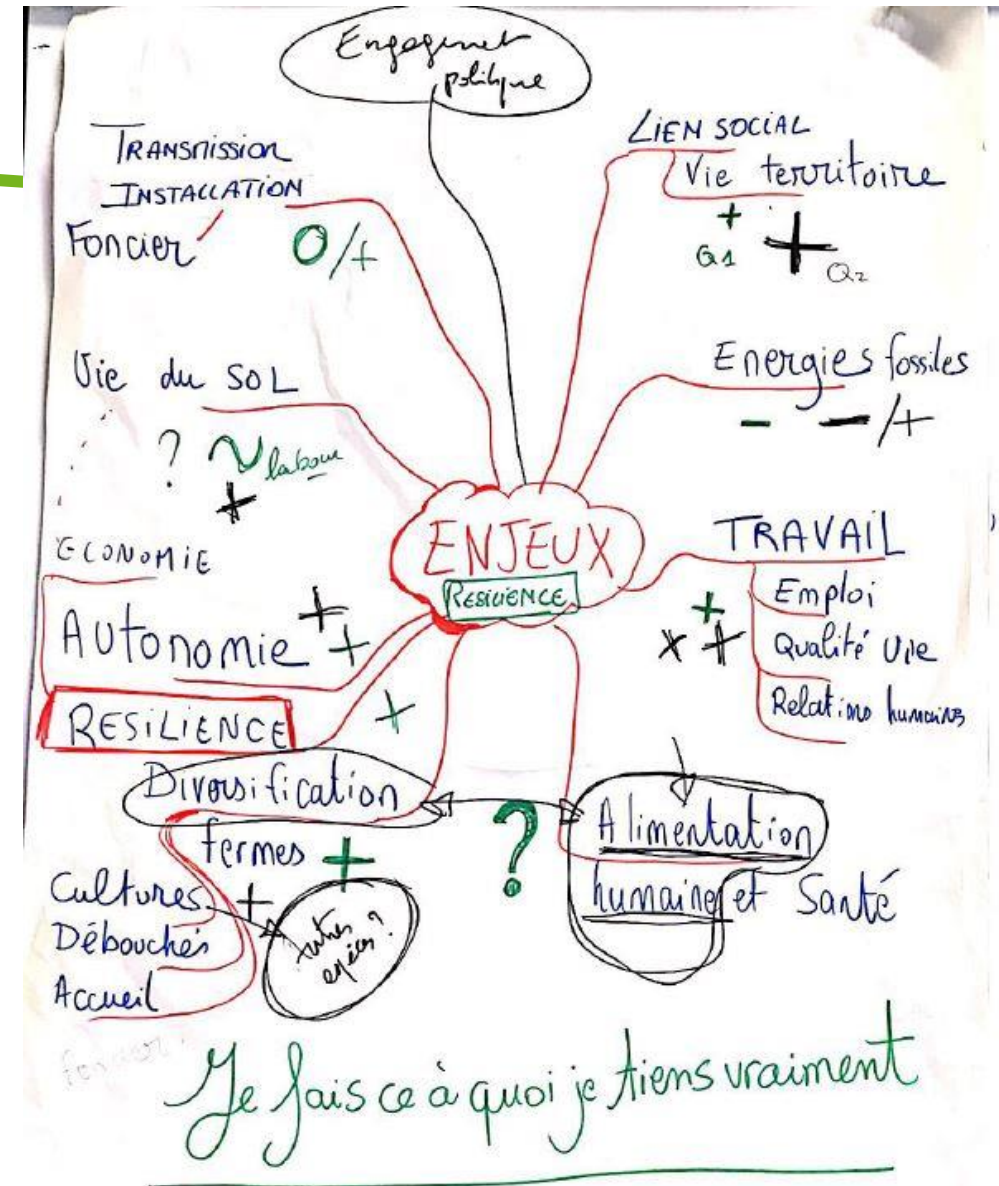 Engagement
politique
TRANSMISSION
INSTALLATION
Foncier
O/+
LIEN SOCIAL
Vie territoire
+
Q1
+
Q2
Vie du SOL
? ~ labour
+
Energies fossiles
- - /+
ENJEUX
RESILIENCE
ECONOMIE
AUtonomie + +
RESILIENCE +
TRAVAIL
Emploi
Qualité Vie
Relations humaines
+
x +
Diversification
fermes +
Cultures +
Débouchés
Accueil
autres
espèces ?
?
Alimentation
humaine et Santé
foncier
Je fais ce à quoi je tiens vraiment